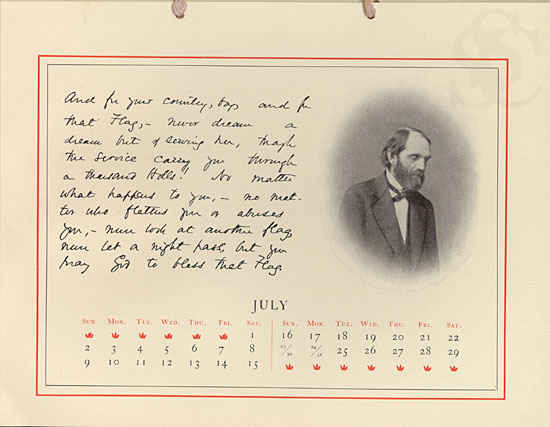 And for your country, boy, and for
that Flag, – never dream a
dream but of serving her, though
the service carry you through
a thousand Hells. No matter
what happens to you, – no mat-
ter who flatters you or abuses
you, – never look at another flag,
never let a night pass, but you
pray God to bless that Flag.
JULY
SUN. MON. TUE. WED. THU. FRI. SAT.
1
2 3 4 5 6 7 8
9 10 11 12 13 14 15
16 17 18 19 20 21 22
23/30 24/31 25 26 27 28 29